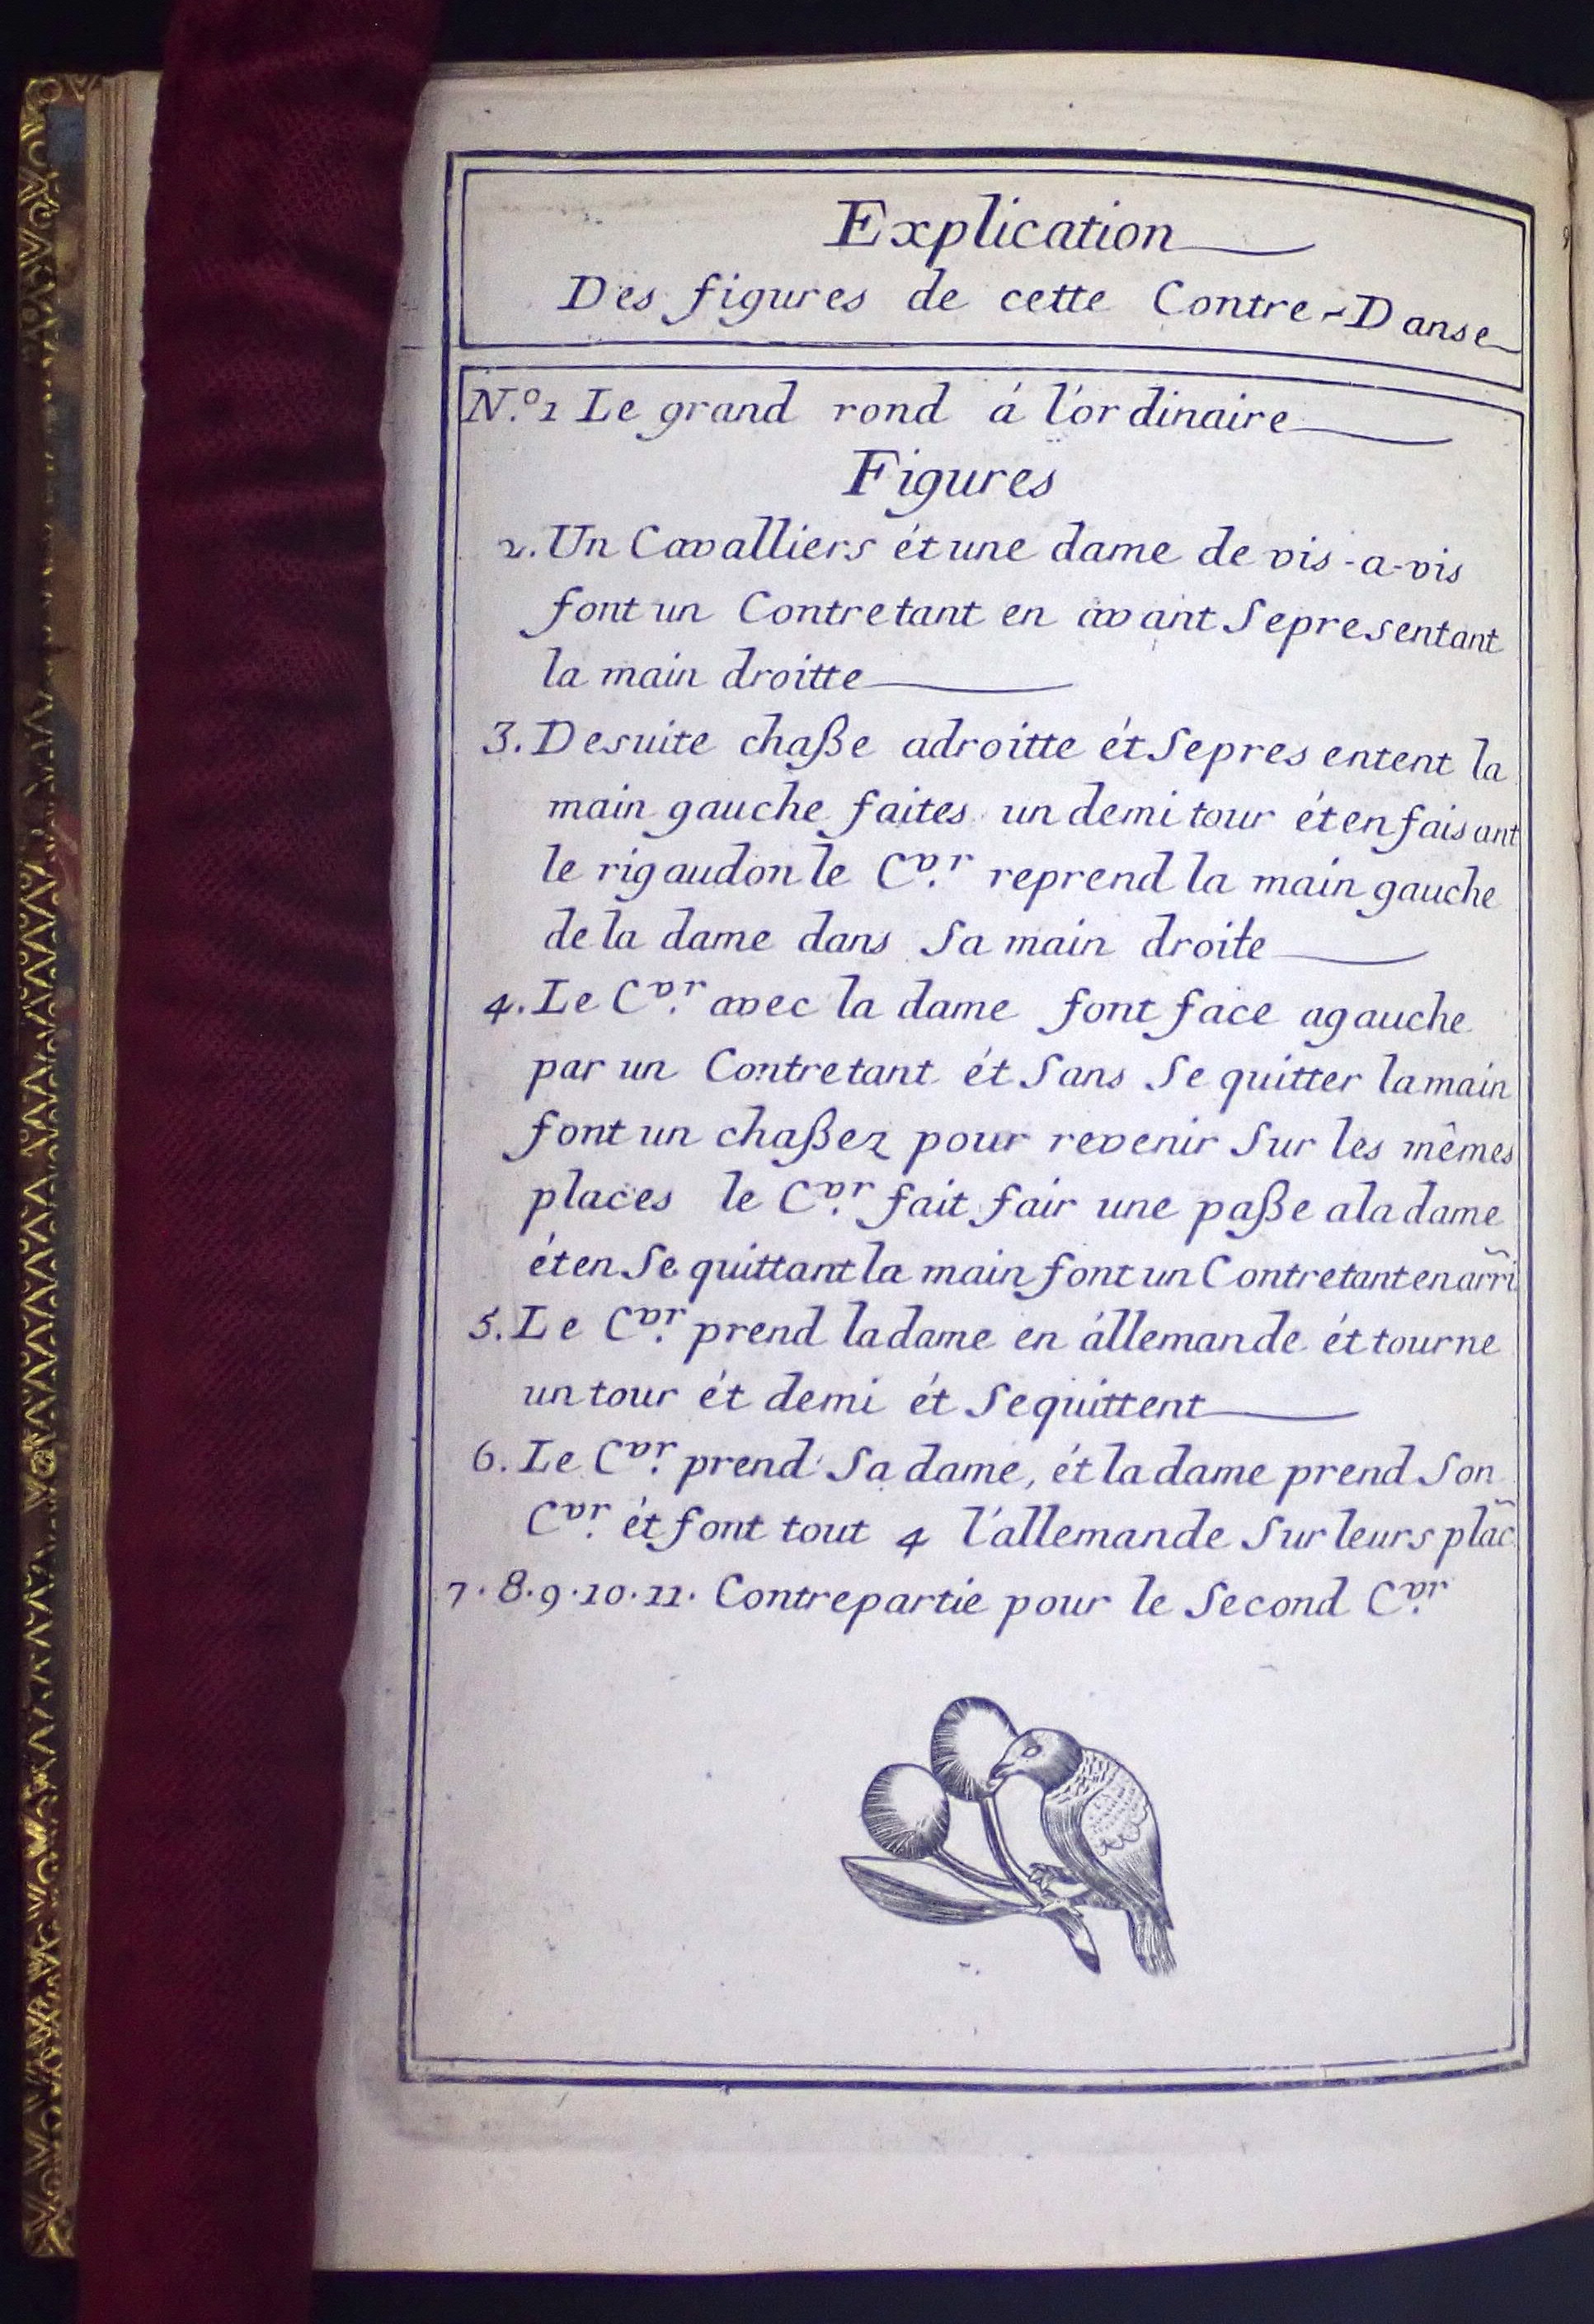 Explication
Des figures de cette Contre-Danse
N.º 1 Le grand rond á l'ordinaire
Figures
2. Un Cavalliers ét une dame de vis-a-vis
font un Contretant en avant Se presentant
la main droitte
3. De suite chaße a droitte ét Se presentent la
main gauche faites un demi tour ét en faisant
le rigaudon le Cvr. reprend la main gauche
de la dame dans Sa main droite
4. Le Cvr. avec la dame font face a gauche
par un Contretant ét Sans Se quitter la main
font un chaßez pour revenir Sur les mêmes
places le Cvr. fait fair une paße a la dame
ét en Se quittant la main font un Contretant en arri
5. Le Cvr. prend la dame en állemande ét tourne
un tour ét demi ét Se quittent
6. Le Cvr. prend Sa dame, ét la dame prend Son
Cvr. ét font tout 4 l'allemande Sur leurs plac
7.8.9.10.11. Contrepartie pour le Second Cvr.